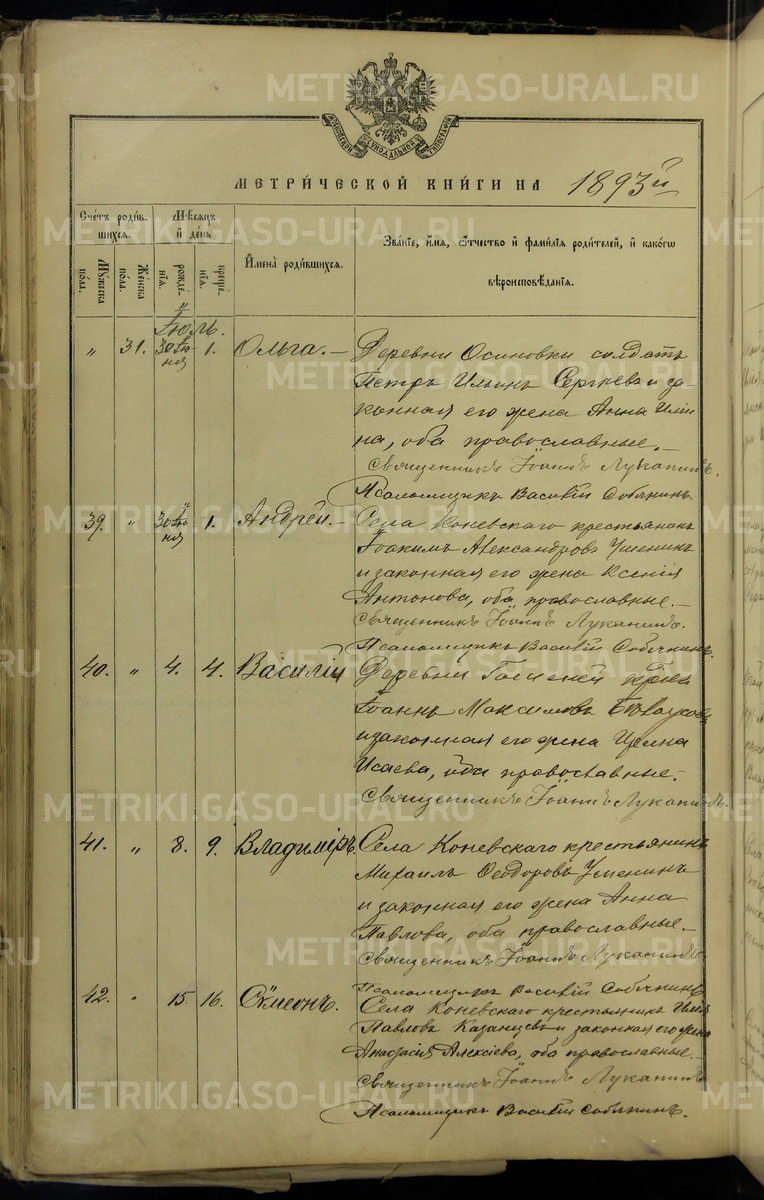 METRIKI.GASO-URAL.RU
МЕТРИ́ЧЕСКОЙ КНИ́ГИ НА 1893й
Сче́тъ роди́в-
шихся.
Мѣсяцъ
и҆ де́нь
И҆мена̀ роди́вшихся.
Зва́нїе, и҆́мѧ, ѻ҆́тчество и҆ фами́лїѧ роди́телей, и҆ како́гѡ
вѣроисповѣ́данїѧ.
Мꙋ́жеска
по́ла.
Же́нска
по́ла.
рожде́-
нїѧ.
креще́-
нїѧ.
Іюль.
" 31. 30 Iю-
ня 1. Ольга. — Деревни Осиновки солдатъ
Петръ Ильинъ Сергѣевъ и за-
конная его жена Анна Ильи
на, оба православные. —
Священникъ Іоаннъ Луканинъ.
Псаломщикъ Василій Собянинъ.
39. " 30 Iю-
ня 1. Андрей. — Села Коневскаго крестьянинъ
Іоакимъ Александровъ Уменинъ
и законная его жена Ксенія
Антонова, оба православные. —
Священникъ Іоаннъ Луканинъ.
Псаломщикъ Василій Собянинъ.
40. " 4. 4. Василій Деревни
Іоаннъ Максимовъ
и законная его жена Ирина
Исаева, оба православные. —
Священникъ Іоаннъ Луканинъ.
41. " 8. 9. Владиміръ. Села Коневскаго крестьянинъ
Михаилъ Ѳеодоровъ Уменинъ
и законная его жена Анна
Павлова, оба православные. —
Священникъ Іоаннъ Луканинъ
Псаломщикъ Василій Собянинъ
42. " 15. 16. Сѵмеонъ. Села Коневскаго крестьянинъ Илія
Павловъ Казанцевъ и законная его жена
Анастасія Алексіева, оба православные. —
Священникъ Іоаннъ Луканинъ
Псаломщикъ Василій Собянинъ.